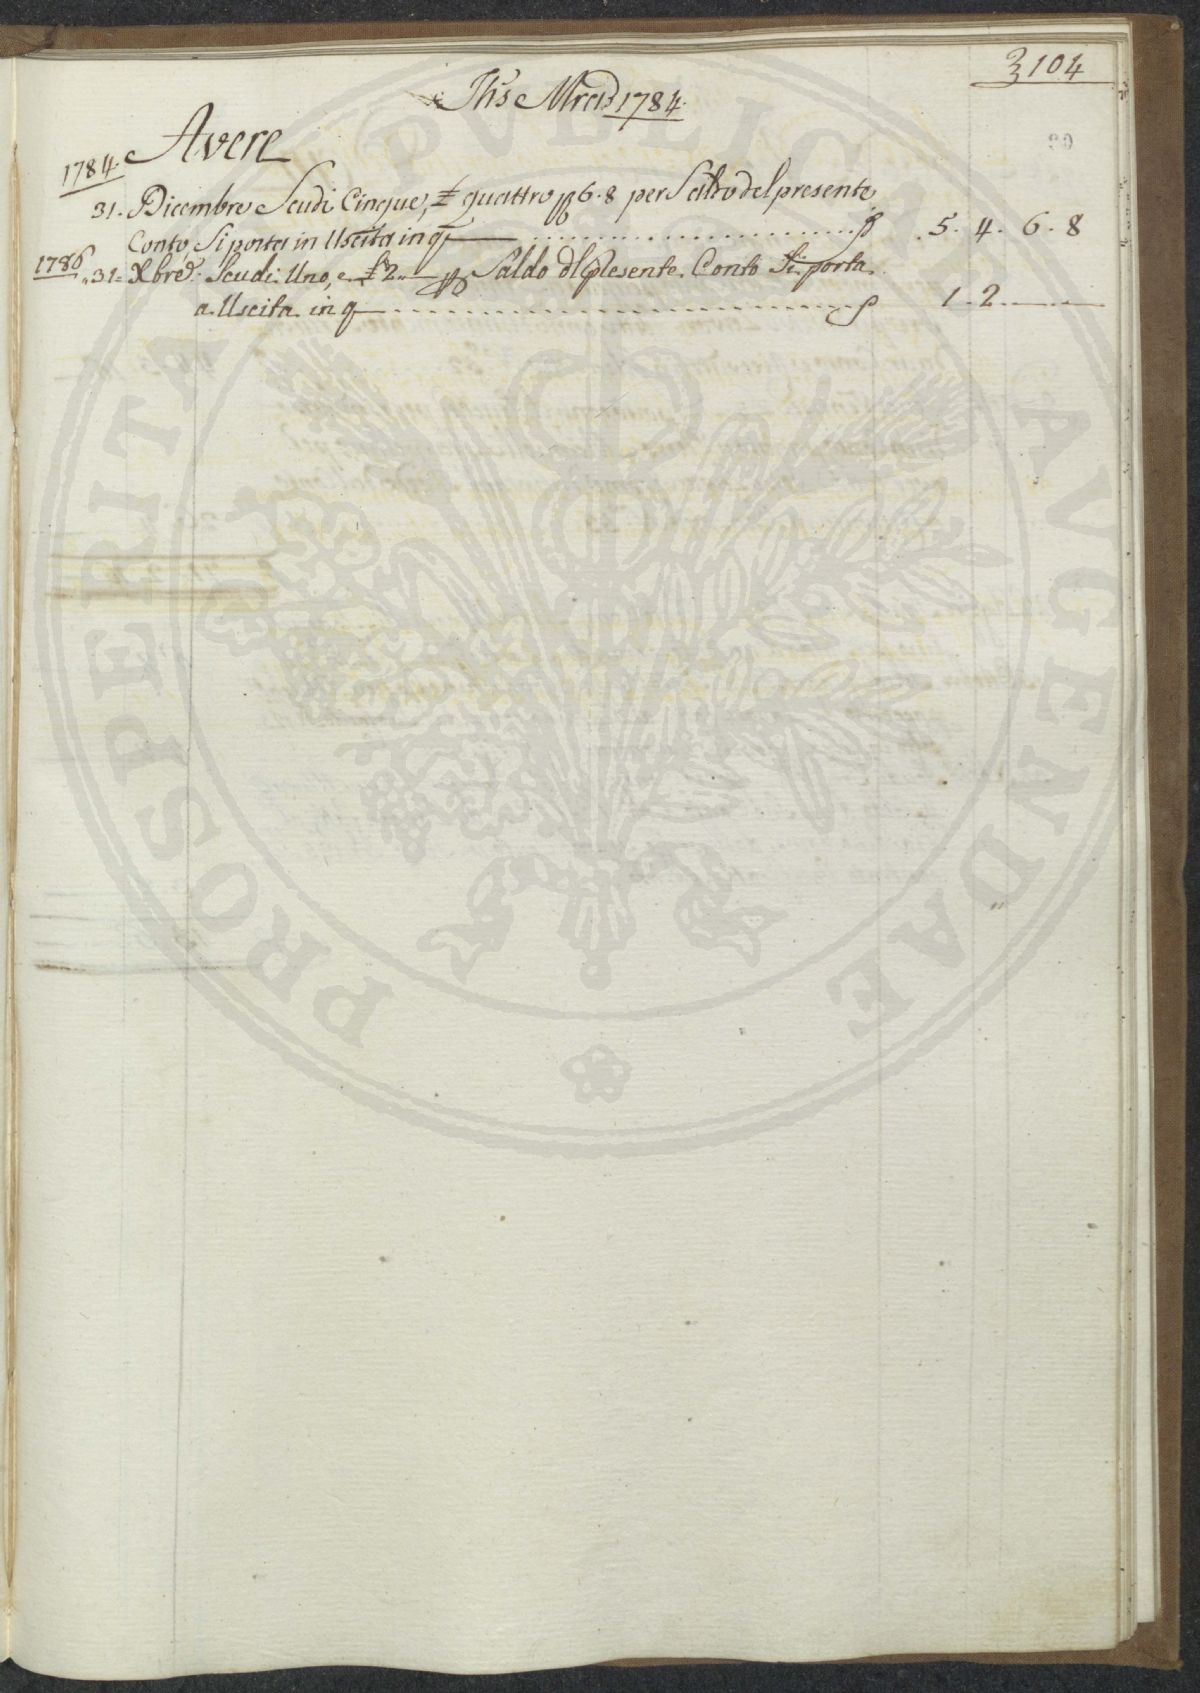 104
Jhs Mrcis 1784.
90
Avere
1784.
31. Dicembre Scudi Cinque, £ quattro 6.8 per Saldo del presente
Conto Si porta in Uscita in q 5. 4. 6. 8
1786
31. Xbre. Scudi Uno, e £ 2 Saldo dl presente Conto Si porta
a Uscita in q 1. 2
PROSPERITATI PVBLICAE AVGENDAE